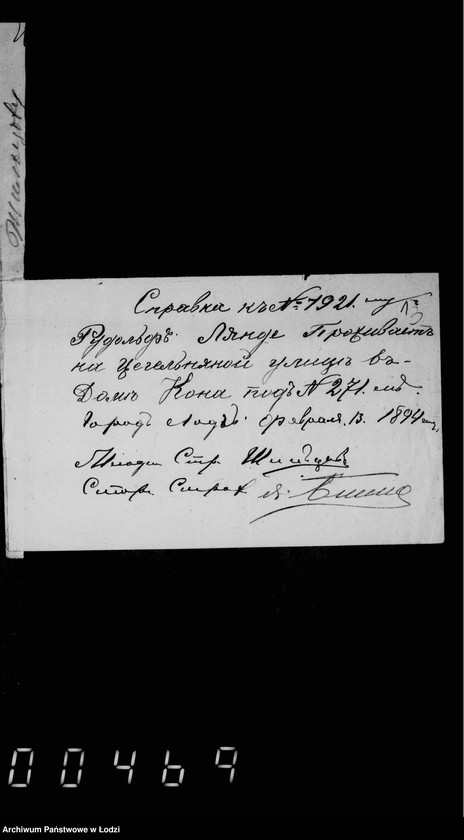 Справка къ № 1921. му
Рудольфъ Лянде Проживаетъ
на Цегельняной улицѣ въ
Домѣ Кона подъ № 271. мъ.
Городъ Лодзь. Февраля. 13. 1894
Младш Стр.
Старш. Страж
00469
Archiwum Państwowe w Łodzi